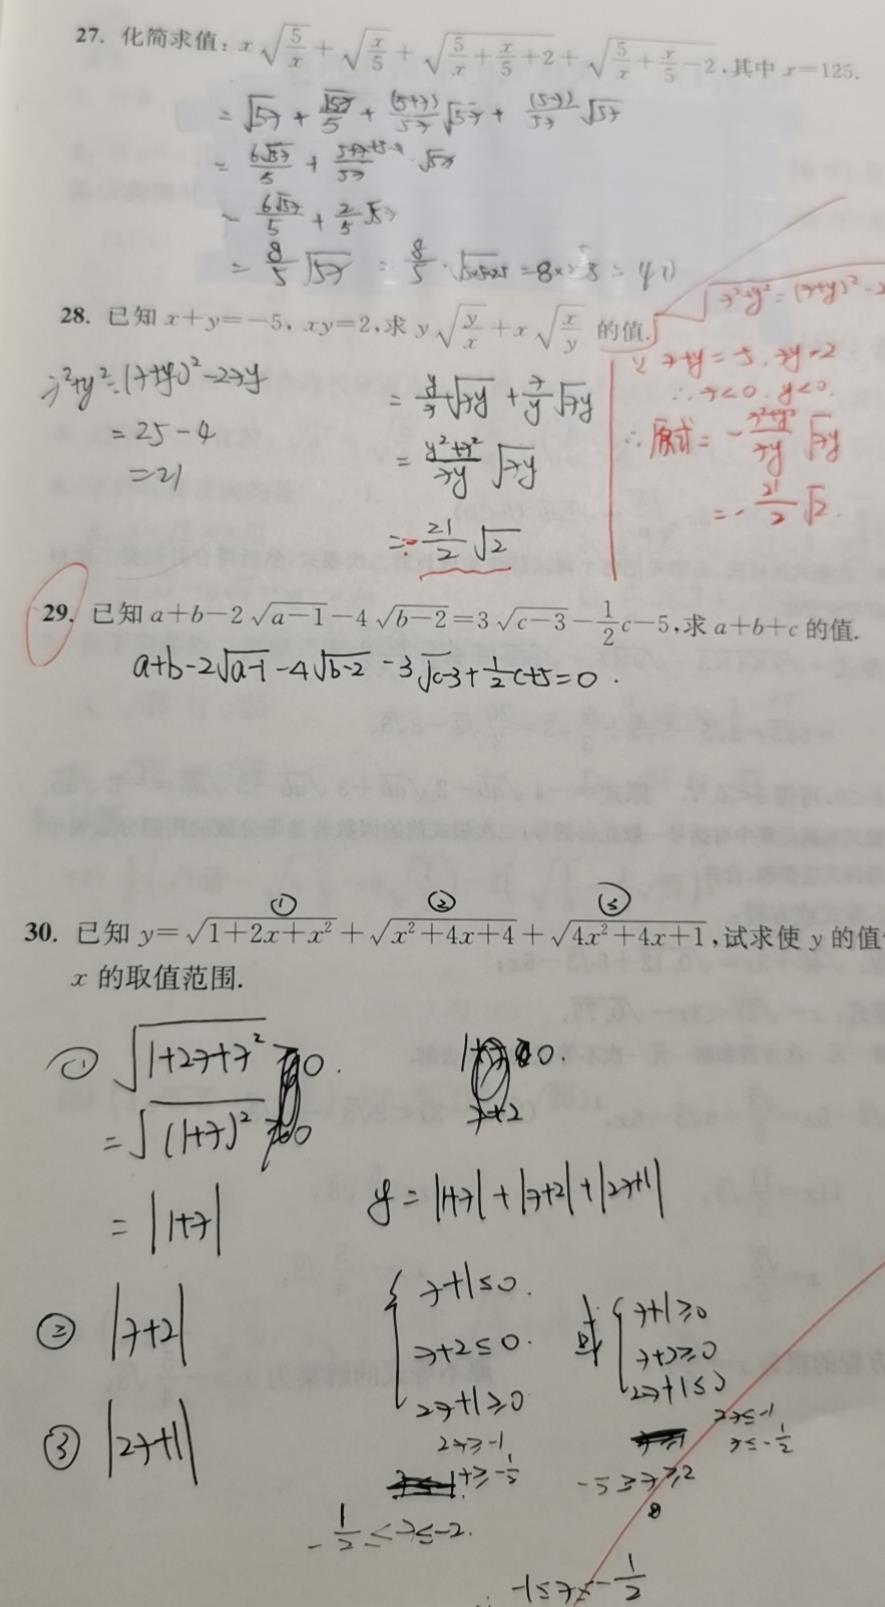 27. 化简求值: x√(5/x) + √(x/5) + √(5/x + x/5 + 2) + √(5/x + x/5 − 2), 其中 x=125.
= √5x + √5x/5 + (5+x)/5x √5x + (5-x)/5x √5x
= 6√5x/5 + 5+x+5-x/5x · √5x
= 6√5x/5 + 2/5 √5x
= 8/5 √5x = 8/5 · √5×125 = 8×25/5 = 40
28. 已知 x+y=−5, xy=2, 求 y√(y/x) + x√(x/y) 的值.
x²+y²=(x+y)²-2xy
= 25-4
=21
= y/x √xy + x/y √xy
= y²+x²/xy √xy
= -21/2 √2
x²+y²=(x+y)²-2
又 x+y=-5, xy=2
∴ x<0, y<0.
∴ 原式 = - x²+y²/xy √xy
= - 21/2 √2.
29. 已知 a+b−2√(a−1)−4√(b−2)=3√(c−3)−1/2 c−5, 求 a+b+c 的值.
a+b-2√a-1 -4√b-2 -3√c-3 + 1/2 c+5=0.
① ② ③
30. 已知 y=√(1+2x+x²)+√(x²+4x+4)+√(4x²+4x+1), 试求使 y 的值
x 的取值范围.
① √1+2x+x² ≥0.
= √(1+x)² ≥0
= |1+x|
x+2
y = |1+x|+|x+2|+|2x+1|
② |x+2|
③ |2x+1|
{ x+1≤0.
x+2≤0.
2x+1≥0
2x≥-1
x≥-1/2
-1/2≤x≤-2.
或 { x+1≥0
x+2≥0
2x+1≤0
2x≤-1
x≤-1/2
∴ -1≤x≤-1/2